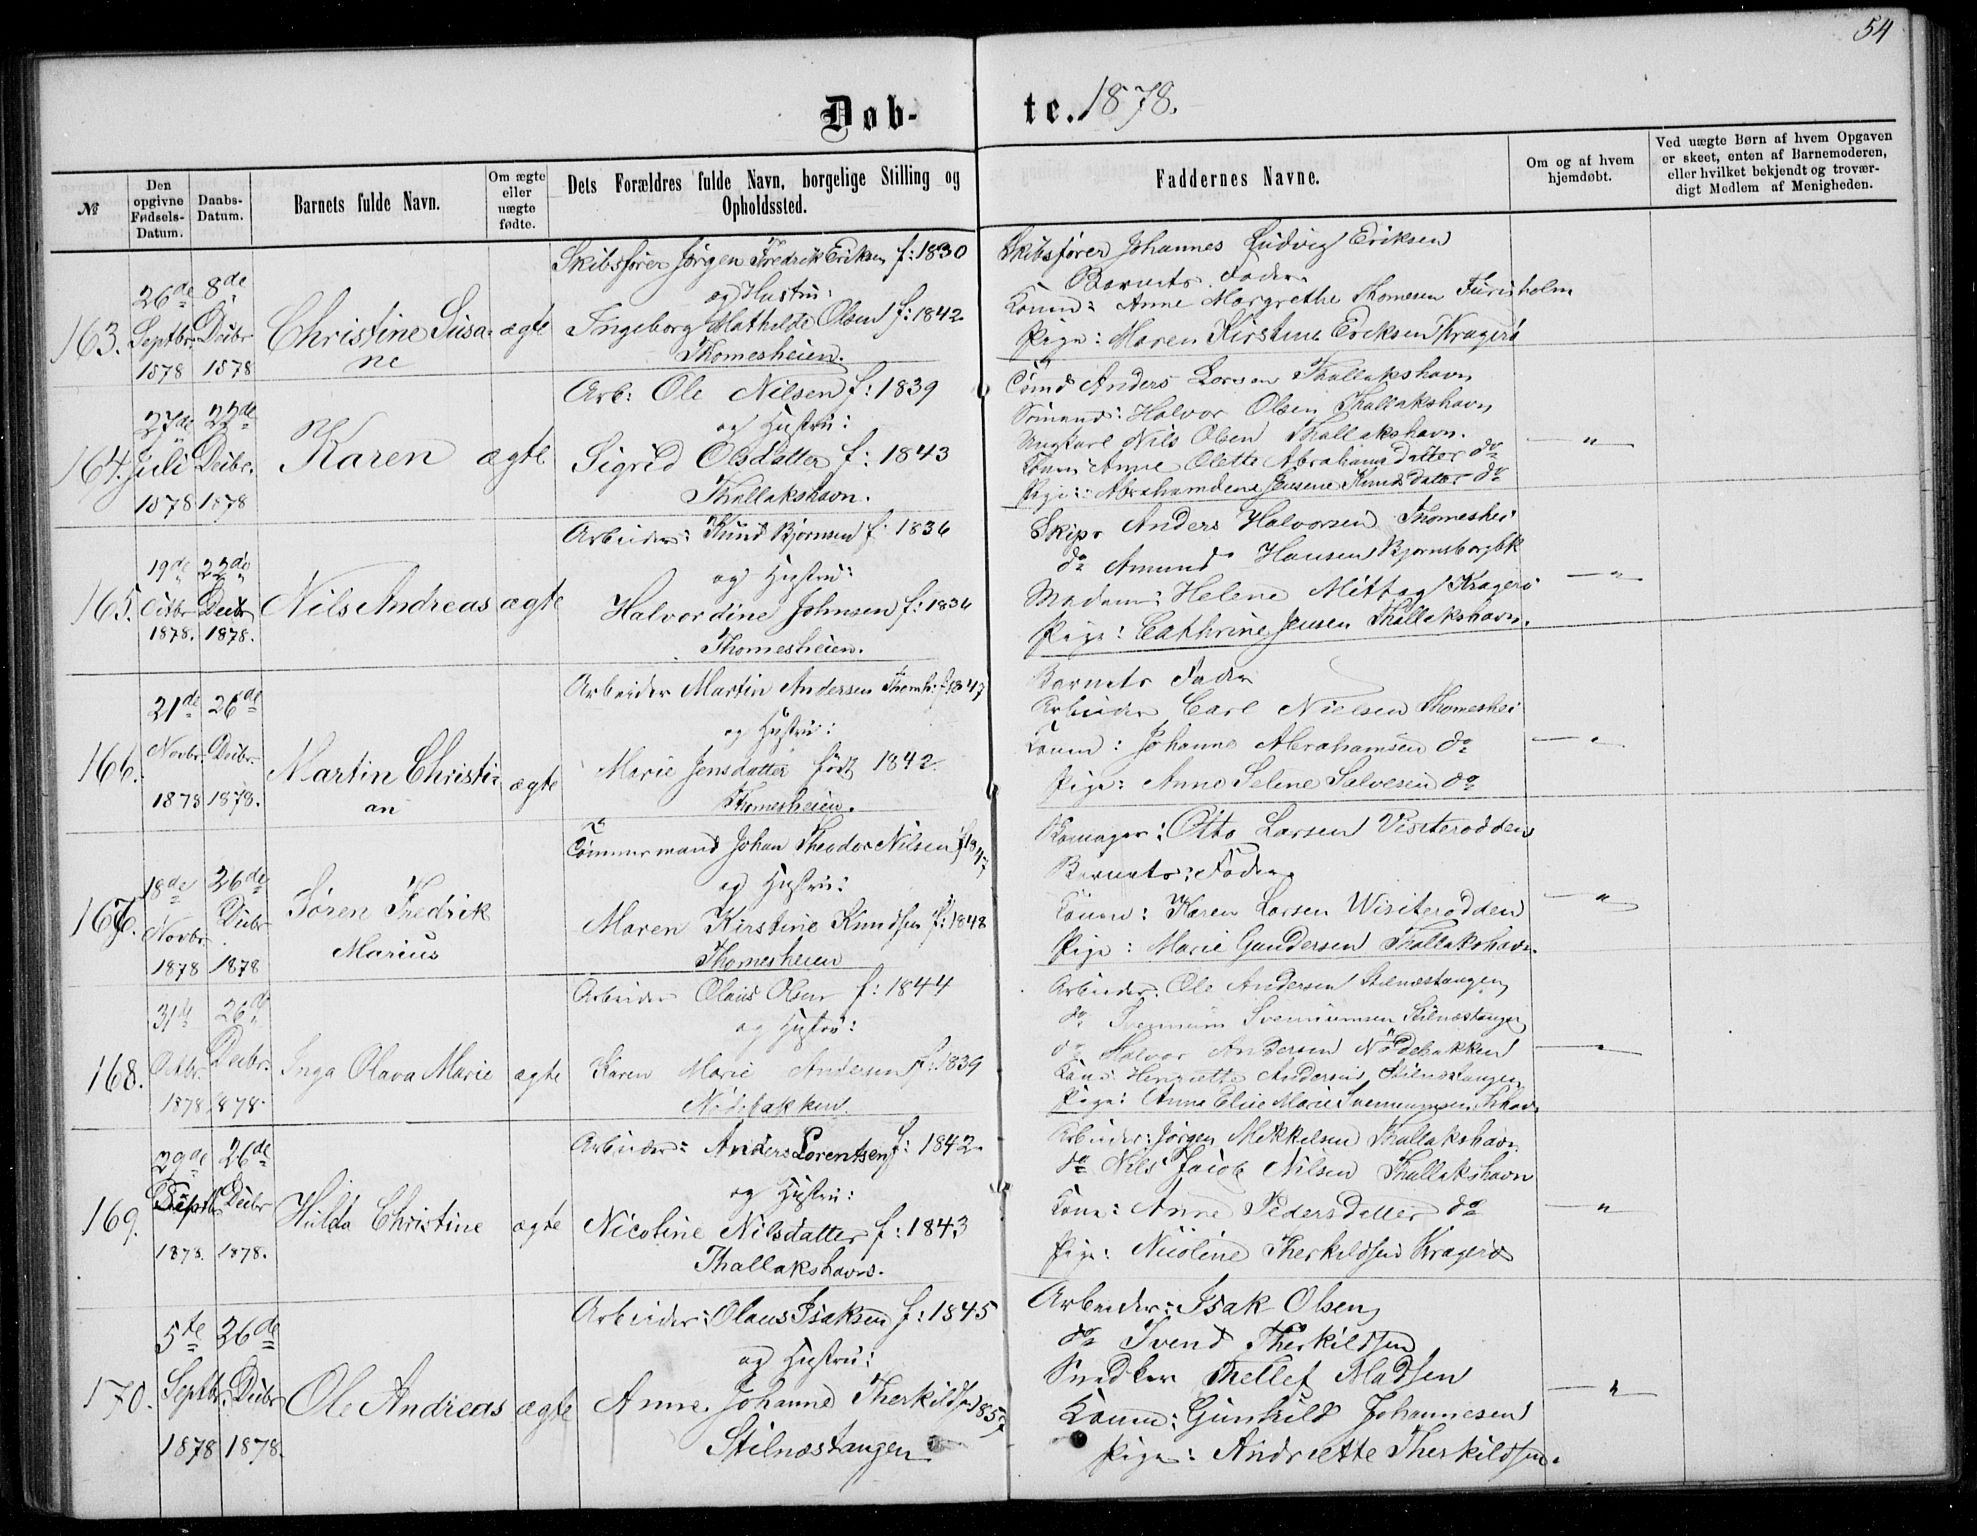 54
Døb- te. 1878.
№
Den opgivne Fødsels-Datum.
Daabs-Datum.
Barnets fulde Navn.
Om ægte eller uægte fødte.
Dets Forældres fulde Navn, borgelige Stilling og Opholdssted.
Faddernes Navne.
Om og af hvem hjemdøbt.
Ved uægte Børn af hvem Opgaven er skeet, enten af Barnemoderen, eller hvilket bekjendt og troværdigt Medlem af Menigheden.
163.
26de Septbr 1878
8de Decbr 1878
Christine Susane
ægte
Skibsfører Jørgen Fredrik Eriksen f: 1830
og Hustru:
Ingeborg Mathilde Olsen f: 1842
Thomesheien.
Skibsfører Johannes Ludvig Eriksen
Barnets Fader
Konen: Anne Margrethe Thomesen Furuholm
Pige: Maren Kirstine Eriksen Kragerø
164.
27de Juli 1878
22de Decbr. 1878
Karen
ægte
Arb: Ole Nilsen f: 1839
og Hustru:
Sigrid Olsdatter f: 1843
Thallakshavn.
Anders Larsen Thallakshavn
Sømand: Halvor Olsen Thallakshavn
Ungkarl Nils Olsen Thallakshavn.
Konen Anne Olette Abrahamsdatter do
Pige: Abrahamdine Jensine Knudsdatter do
— " —
165.
19de Octbr 1878.
22de Decbr 1878.
Nils Andreas
ægte
Arbeider: Knud Bjørnsen f: 1836
og Hustru:
Halvordine Johnsen f: 1836
Thomesheien.
Skipr Anders Halvorsen Thomeshei
do Amund Hansen Bjørnsborgbk
Madam: Helene Mittag Kragerø
Pige: Cathrine Jensen Thallakshavn.
— " —
166.
21de Novbr. 1878
26de Decbr. 1878.
Martin Christian
ægte
Arbeider Martin Andersen Thomh: f: 1847
og Hustru:
Marie Jensdatter født 1842.
Thomesheien.
Barnets Fader
Arbeider Carl Nielsen Thomeshei
Konen: Johanne Abrahamsen do
Pige: Anne Selene Salvesen do
— " —
167.
18de Novbr 1878
26de Decbr 1878
Søren Fredrik Marius
Tømmermand Johan Theodor Nilsen f 1847
og Hustru:
Maren Kirstine Knudsen f: 1848
Thomesheien
Otto Larsen Visiterodden
Barnets Fader
Konen: Karen Larsen Wisiterodden
Pige: Marie Gundersen Thallakshavn.
— " —
168.
31te Octbr. 1878
26de Decbr. 1878.
Inga Olava Marie
ægte
Arbeider Olaus Olsen f: 1844
og Hustru:
Karen Marie Andersen f: 1839
Nødebakken
Arbeider: Ole Andersen Stilnæstangen
do Svennum Svennumsen Stilnæstangen
do Halvor Andersen Nødebakken
Kone Henriette Andersen Stilnæstangen
Pige: Anne Elise Marie Svennumsen
— " —
169.
29de Septbr 1878.
26de Decbr 1878.
Hilda Christine
ægte
Arbeider: Anders Lorentsen f: 1842.
og Hustru:
Nicoline Nilsdatter f: 1843
Thallakshavn.
Arbeider: Jørgen Mikkelsen Thallakshavn
do Nils Jacob Nilsen Thallakshavn
Kone: Anne Pedersdatter do
Pige: Nicoline Therkildsen Kragerø
— " —
170.
5te Septbr. 1878
26de Decbr 1878.
Ole Andreas
ægte
Arbeider: Olaus Isaksen f: 1845
og Hustru:
Anne Johanne Therkildsen
Stilnæstangen
Arbeider: Isak Olsen
do Svend Therkildsen
Snedker Tellef Madsen
Konen: Gunhild Johannesen
Pige: Andriette Therkildsen.
— " —